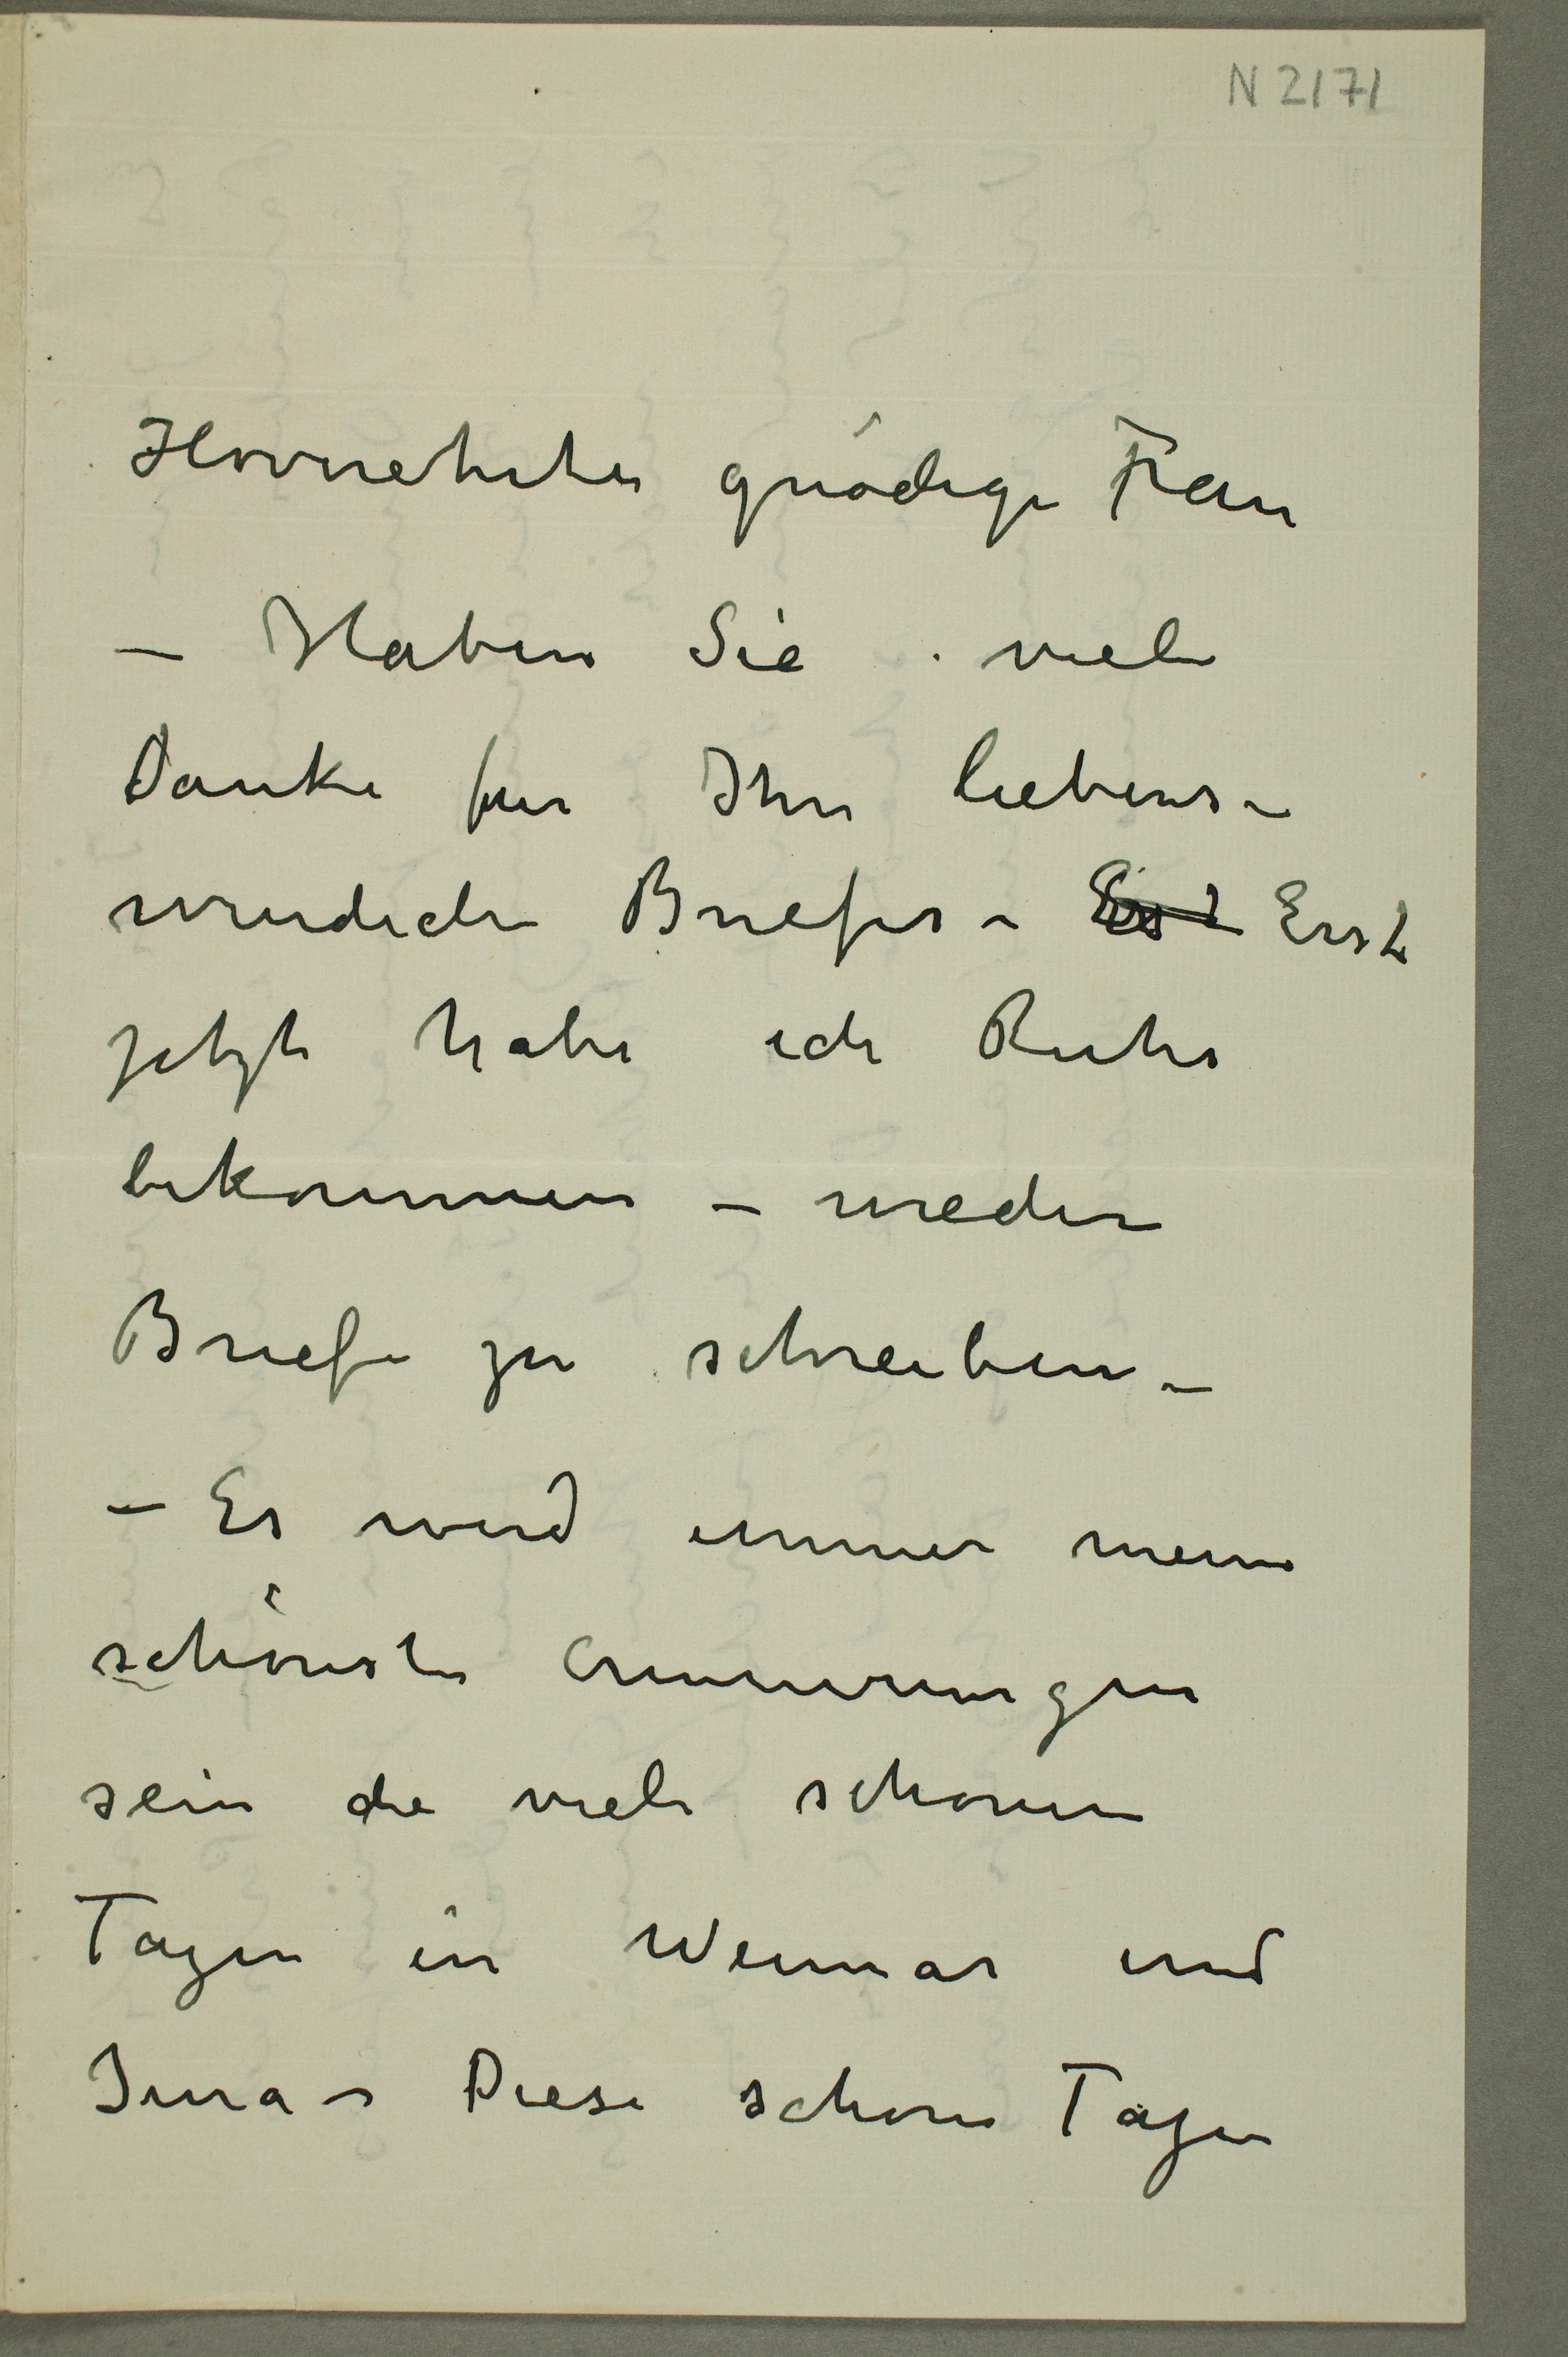 N 2171
Hoverehrte gnädige Frau
– Haben Sie viele
Danke fur Ihre liebens–
wurdiche Briefes – Erst Erst
jetzt habe ich Ruhe
bekommen – wieder
Briefe zu schreiben –
– Es wird immer meine
schönste Erinnerungen
sein die viele schonen
Tagen in Weimar und
Jena – Diese schone Tagen